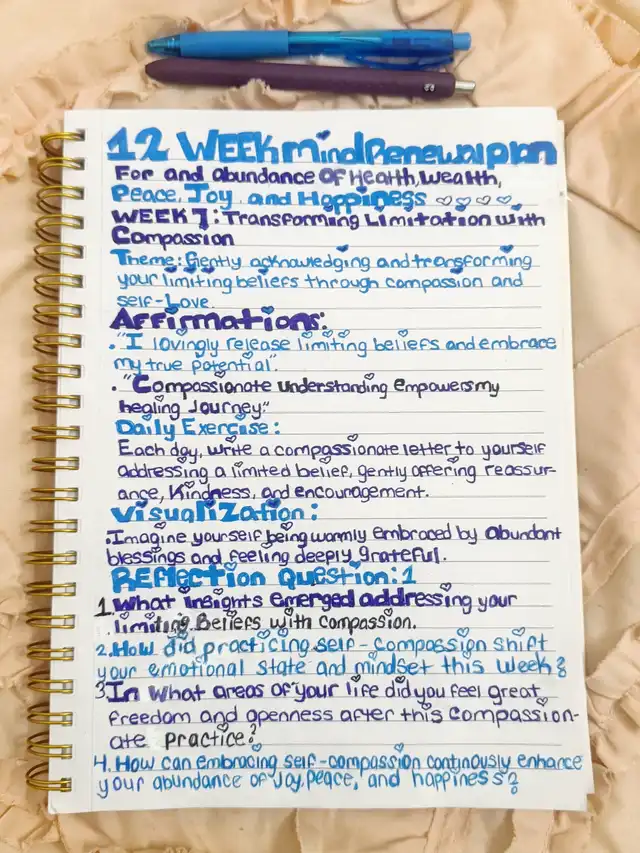 12 WEEK Mind Renewal plan
For and abundance of Health, Wealth,
Peace, Joy, and Happiness ♡♡♡♡
WEEK 7: Transforming Limitation with
Compassion
Theme: Gently acknowledging and transforming
your limiting beliefs through compassion and
self-Love.
Affirmations:
• "I lovingly release limiting beliefs and embrace
my true potential".
• "Compassionate understanding empowers my
healing Journey."
Daily Exercise:
Each day, write a compassionate letter to yourself
addressing a limited belief, gently offering reassur-
ance, Kindness, and encouragement.
Visualization:
• Imagine yourself being warmly embraced by abundant
blessings and feeling deeply grateful.
Reflection Question: 1
1 What insights emerged addressing your
limiting Beliefs with compassion.
2. How did practicing self-compassion shift
your emotional state and mindset this week?
3 In what areas of your life did you feel great
freedom and openness after this Compassion-
ate practice?
4. How can embracing self-compassion continously enhance
your abundance of Joy, peace, and happiness?